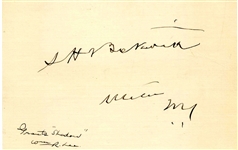 S H Beckwith
Utica
NY
Grant's "Shadow"